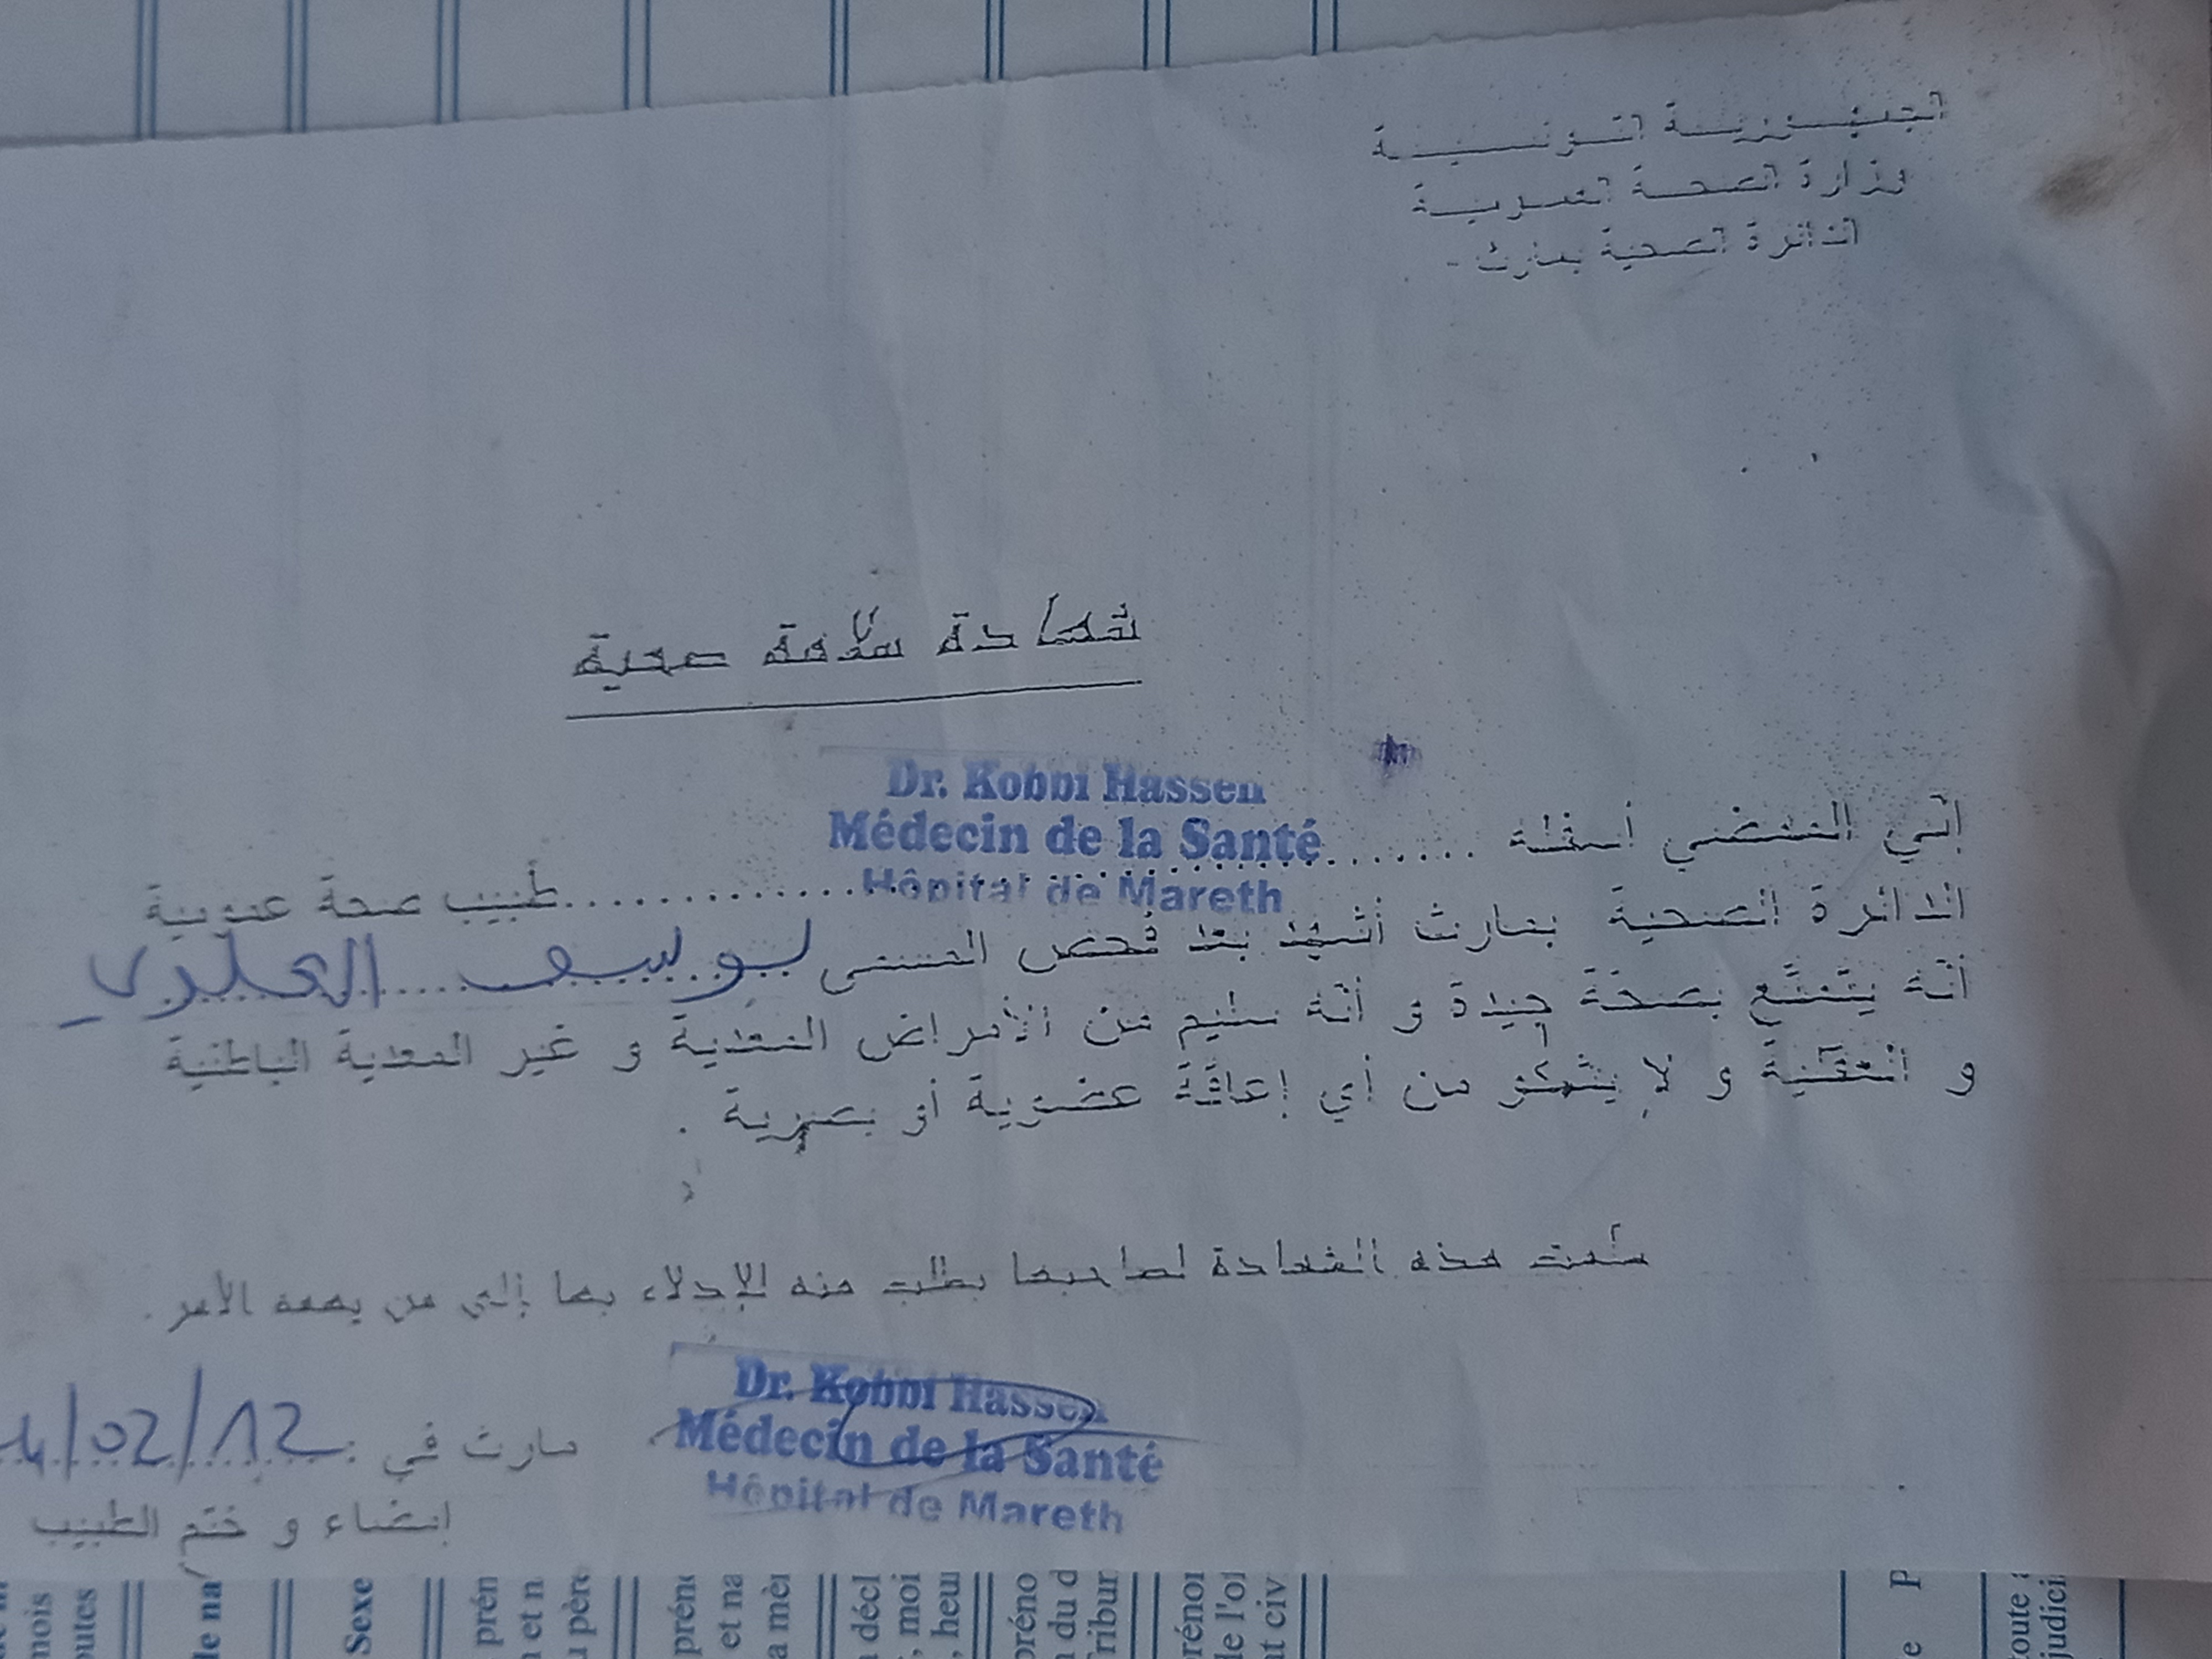 الجمهورية التونسية
وزارة الصحة العمومية
الدائرة الصحية بمارث -
شهادة سلامة صحية
Dr. Kobbi Hassen
Médecin de la Santé
Hôpital de Mareth
إنّي الممضي أسفله .......... طبيب صحة عمومية
الدائرة الصحية بمارث أشهد بعد فحص المسمى يوسف
أنّه يتمتّع بصحّة جيدة و أنّه سليم من الأمراض المعدية و غير المعدية الباطنية
و العقلية و لا يشكو من أي إعاقة عضوية أو بصرية .
سلّمت هذه الشهادة لصاحبها بطلب منه للإدلاء بها إلى من يهمه الأمر .
Dr. Kobbi Hassen
Médecin de la Santé
Hôpital de Mareth
مارث في : /02/12
إمضاء و ختم الطبيب
mois
Sexe
prén
et n
père
préno
et na
mère
décl
moi
heu
préno
du d
Tribun
prénon
de l'of
civ
P
toute
judici